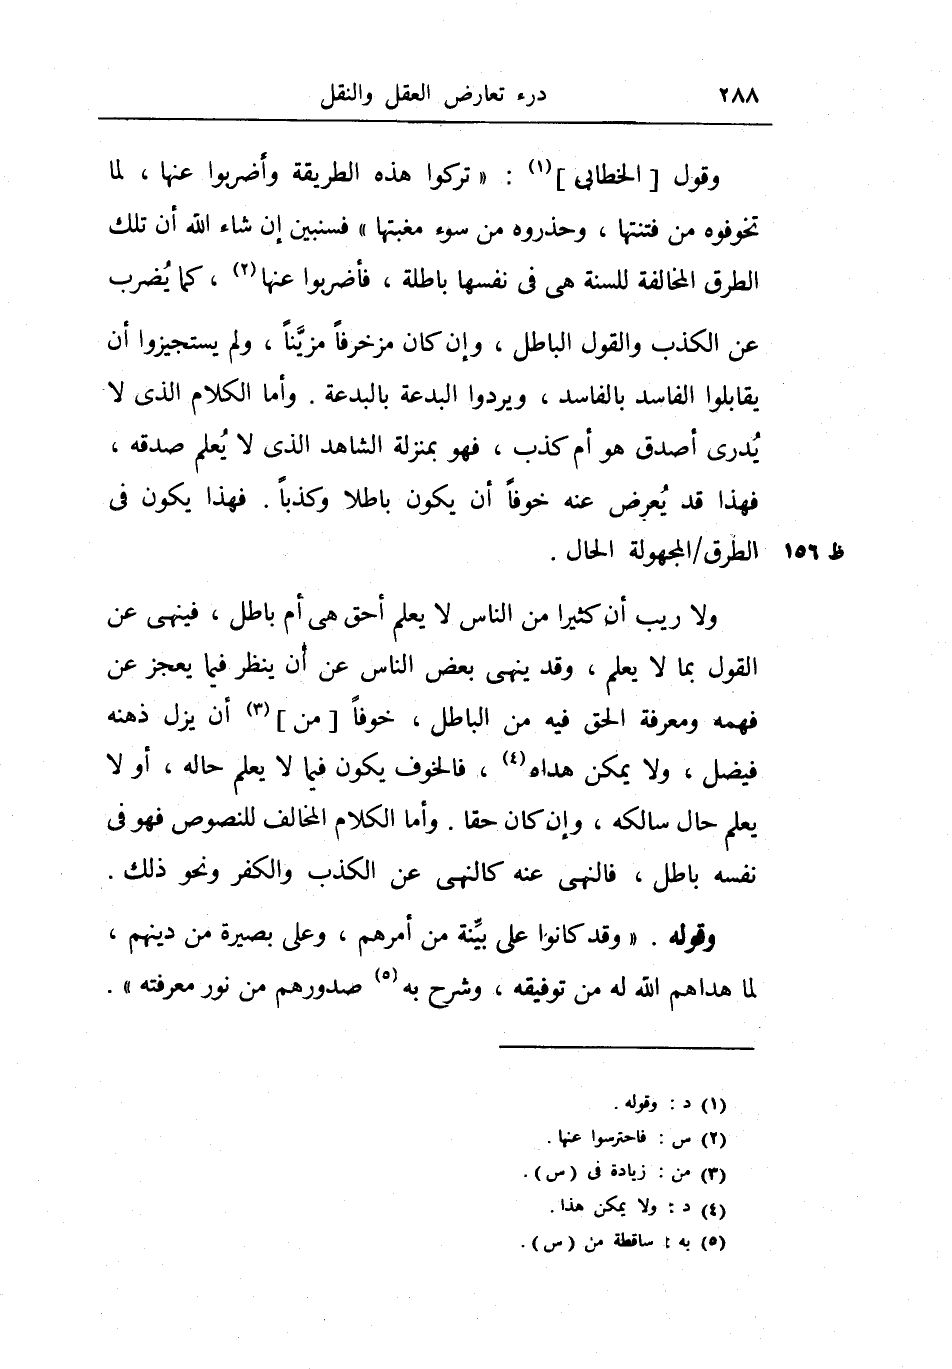 ٢٨٨ درء تعارض العقل والنقل
وقول [ الخطابى ](١) : « تركوا هذه الطريقة وأضربوا عنها ، لما
تخوفوه من فتنتها ، وحذروه من سوء مغبتها » فسنبين إن شاء الله أن تلك
الطرق المخالفة للسنة هى فى نفسها باطلة ، فأضربوا عنها(٢) ، كما يُضرب
عن الكذب والقول الباطل ، وإن كان مزخرفاً مزيَّناً ، ولم يستجيزوا أن
يقابلوا الفاسد بالفاسد ، ويردوا البدعة بالبدعة . وأما الكلام الذى لا
يُدرى أصدق هو أم كذب ، فهو بمنزلة الشاهد الذى لا يُعلم صدقه ،
فهذا قد يُعرِض عنه خوفاً أن يكون باطلا وكذباً . فهذا يكون فى
ظ ١٥٦ الطرق/المجهولة الحال .
ولا ريب أن كثيرا من الناس لا يعلم أحق هى أم باطل ، فينهى عن
القول بما لا يعلم ، وقد ينهى بعض الناس عن أن ينظر فيما يعجز عن
فهمه ومعرفة الحق فيه من الباطل ، خوفاً [ من ](٣) أن يزل ذهنه
فيضل ، ولا يمكن هداه(٤) ، فالخوف يكون فيما لا يعلم حاله ، أو لا
يعلم حال سالكه ، وإن كان حقا . وأما الكلام المخالف للنصوص فهو فى
نفسه باطل ، فالنهى عنه كالنهى عن الكذب والكفر ونحو ذلك .
وقوله . « وقد كانوا على بيِّنة من أمرهم ، وعلى بصيرة من دينهم ،
لما هداهم الله له من توفيقه ، وشرح به(٥) صدورهم من نور معرفته » .
(١) د : وقوله .
(٢) س : فاحترسوا عنها .
(٣) من : زيادة فى ( س ) .
(٤) د : ولا يمكن هذا .
(٥) به : ساقطة من ( س ) .